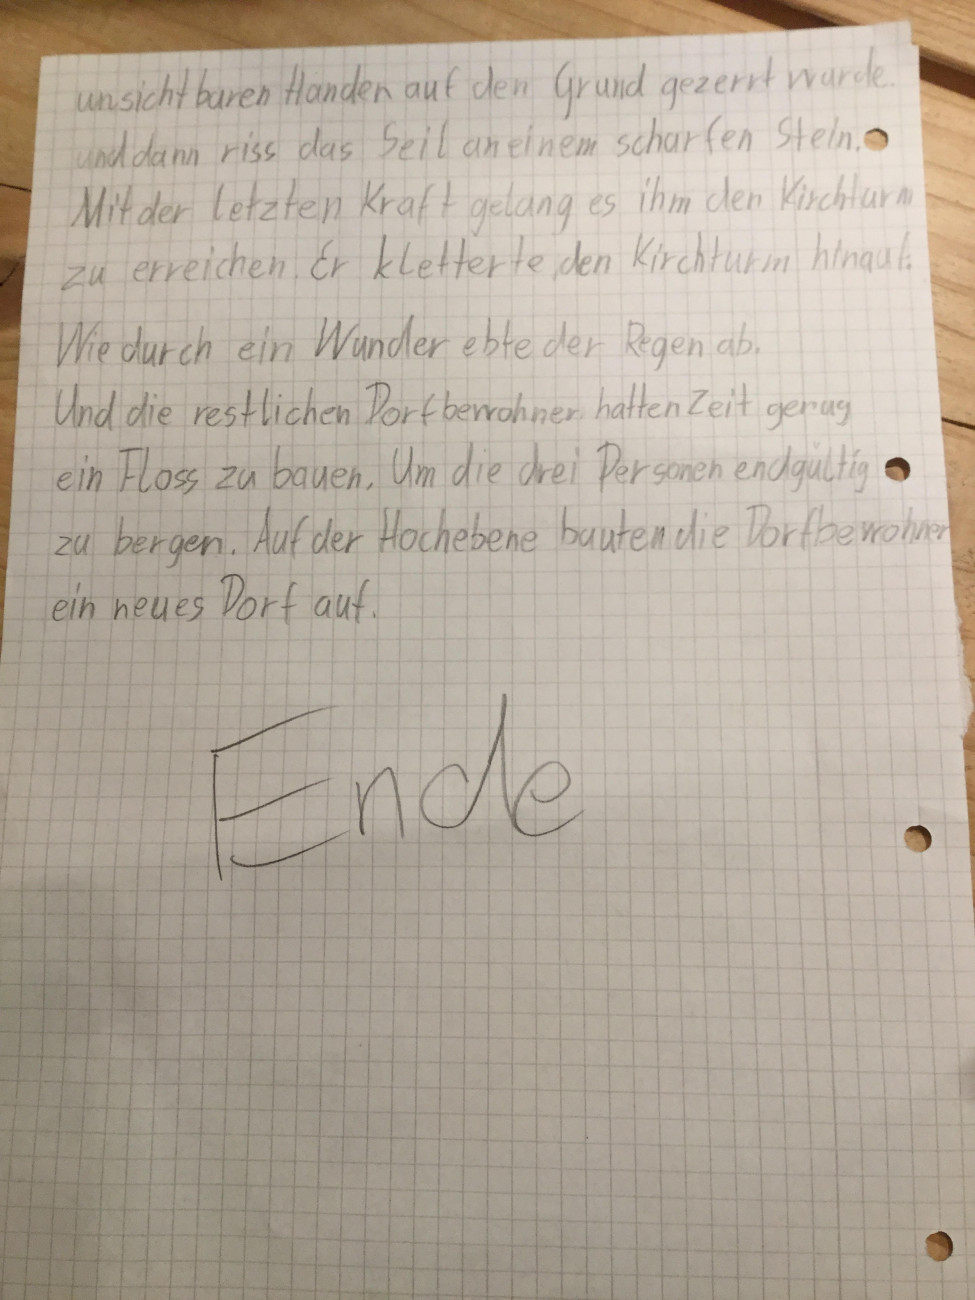 unsichtbaren Handen auf den Grund gezerrt wurde.
und dann riss das Seil an einem scharfen Stein.
Mit der letzten Kraft gelang es ihm den Kirchturm
zu erreichen. Er kletterte den Kirchturm hinauf.
Wie durch ein Wunder ebte der Regen ab.
Und die restlichen Dorfbewohner hatten Zeit genug
ein Floss zu bauen. Um die drei Personen endgültig
zu bergen. Auf der Hochebene bauten die Dorfbewohner
ein neues Dorf auf.
Ende